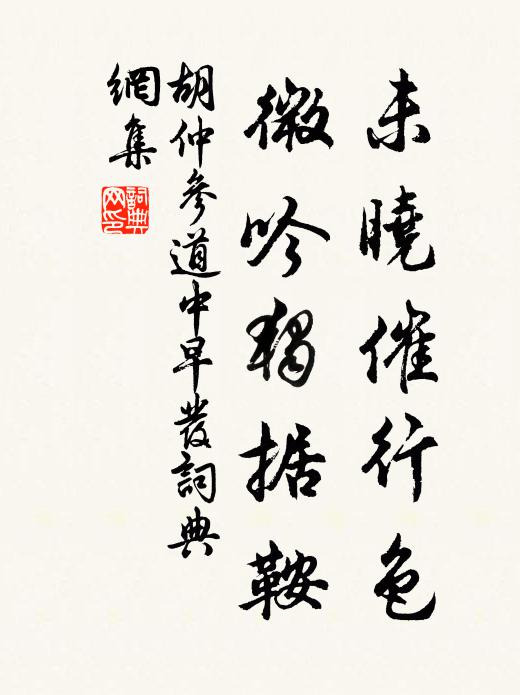 未曉催行色
微吟獨据鞍
胡仲參道中早發詞典
網集
詞典
网印